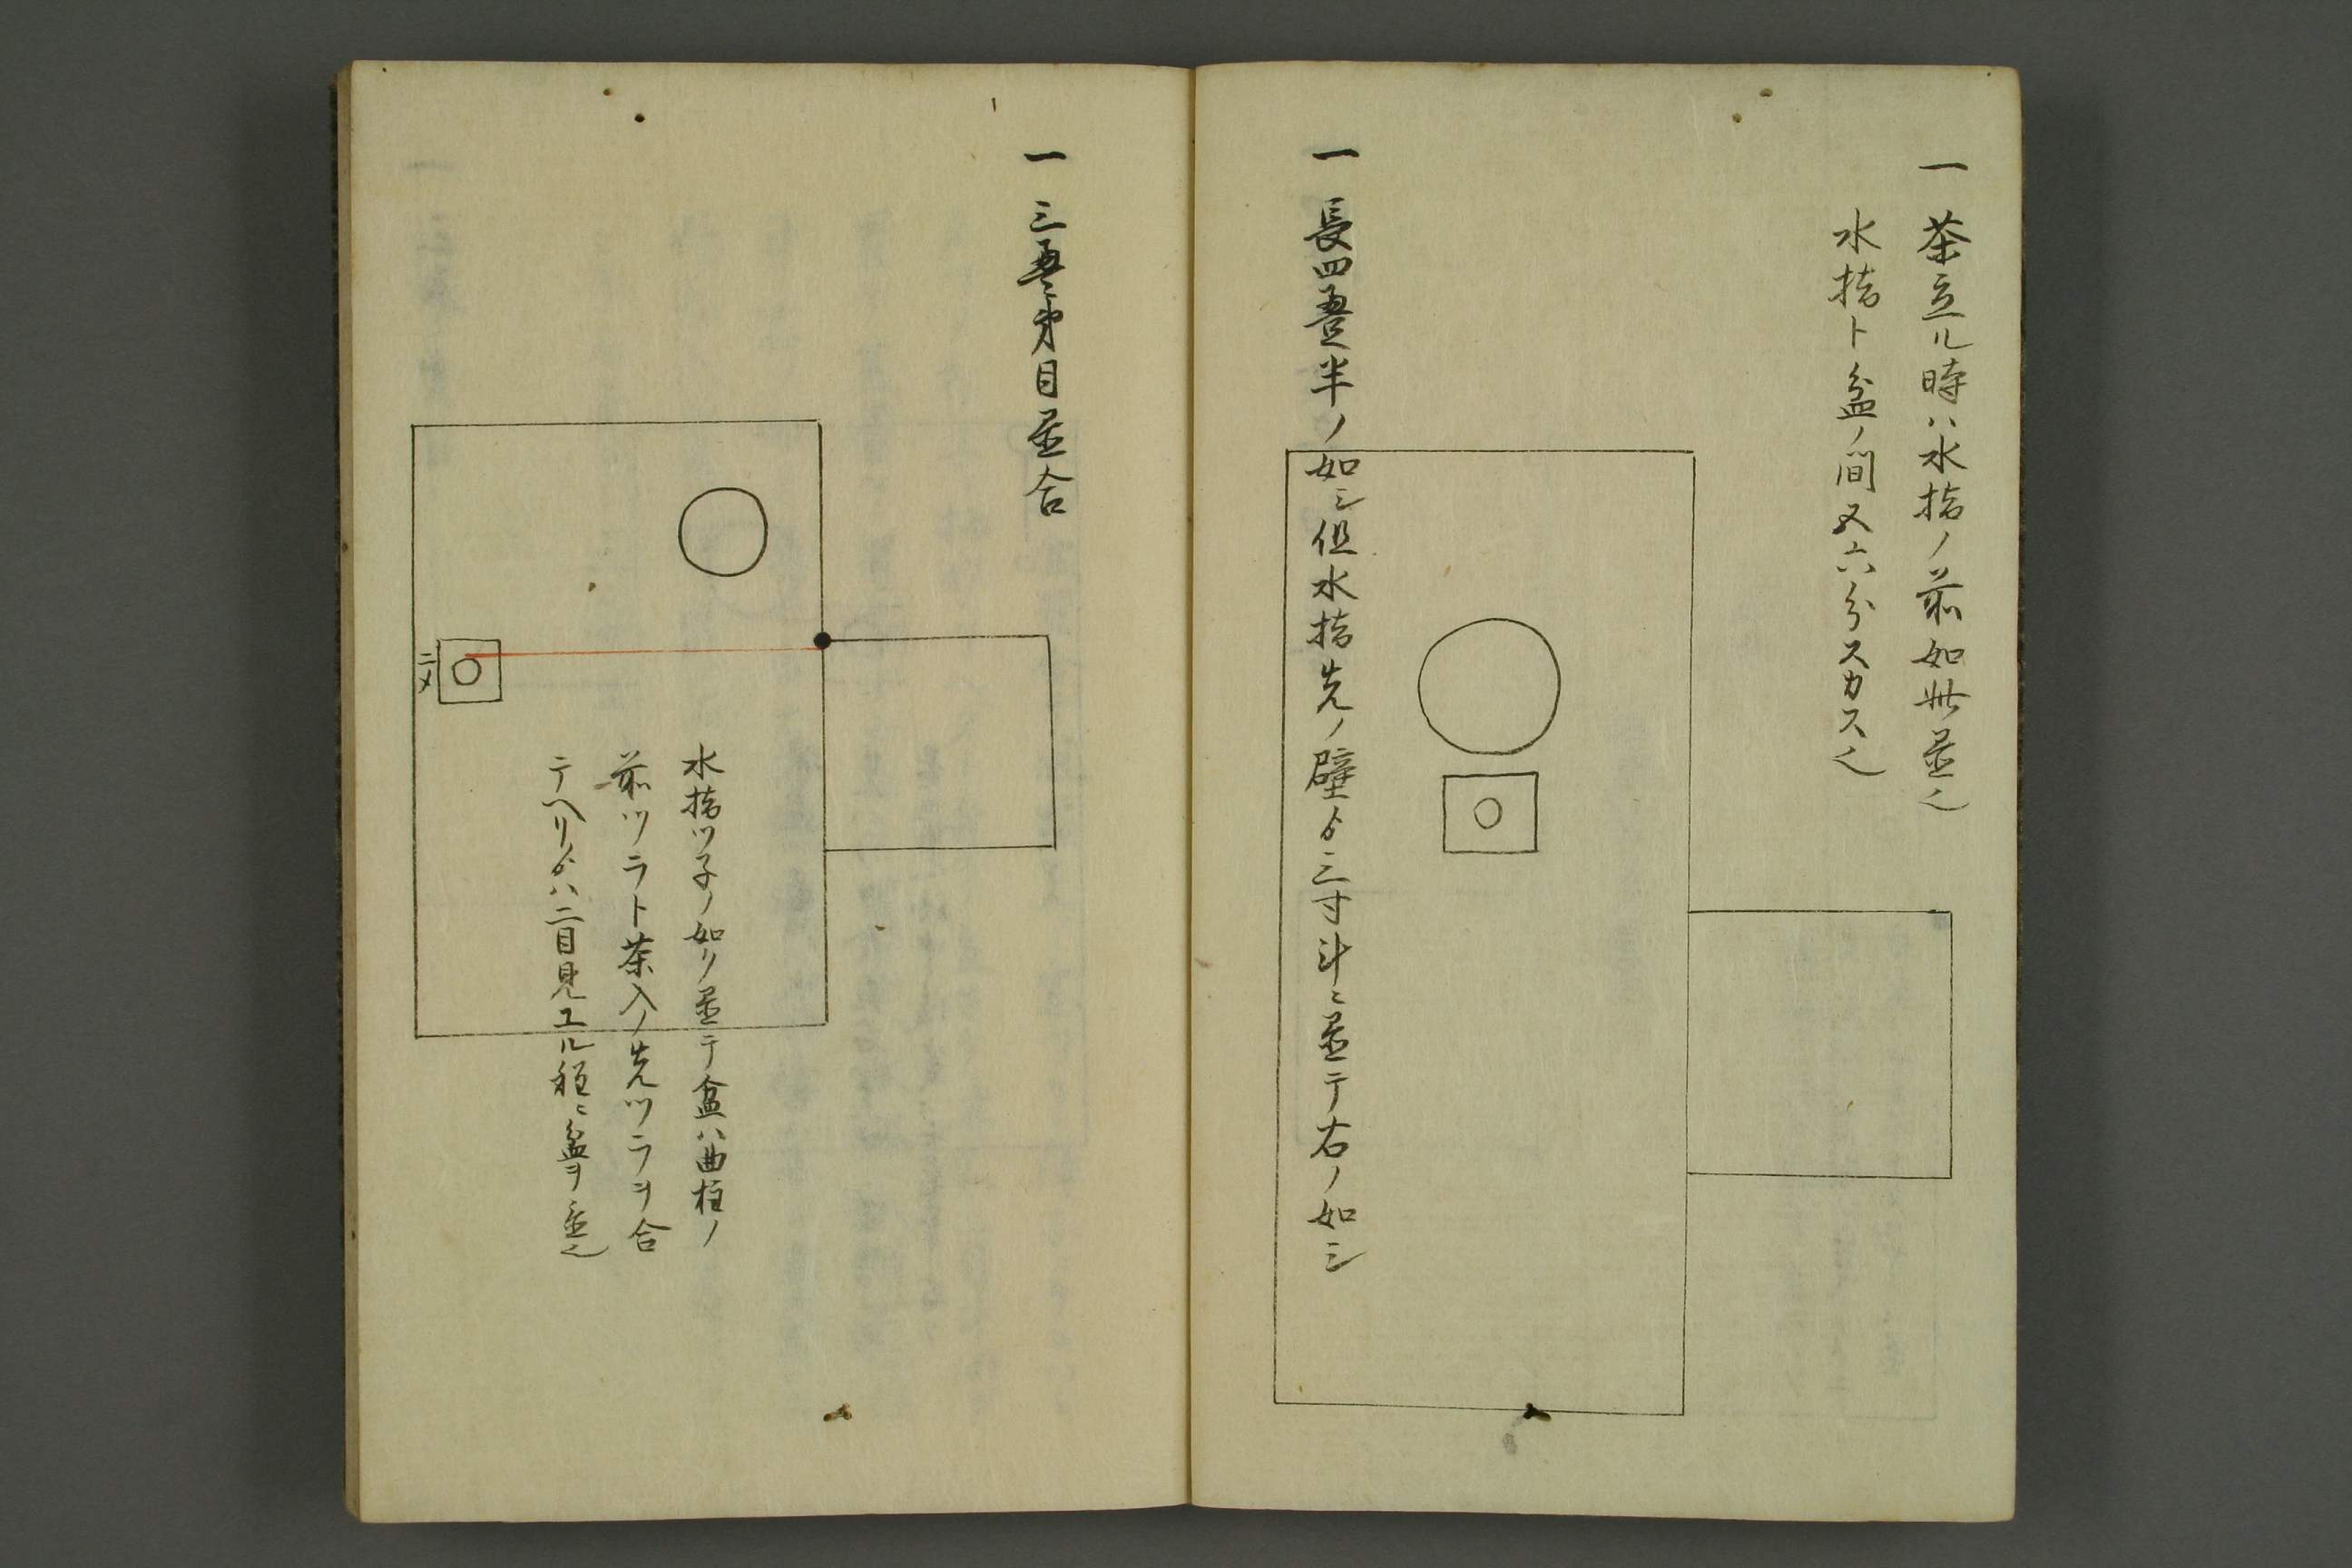 一 茶立ル時ハ水指ノ前如此置也
水指ト盆ノ間五六分スカス也
一 長四畳半ノ如シ但水指先ノ壁ゟ三寸斗ニ置テ右ノ如シ
一 三畳大目置合
二メ
水指ツ子ノ如ク置テ盆ハ曲柱ノ
前ツラト茶入ノ先ツラヲ合
テヘリゟハ二目見エル程ニ盆ヲ置也